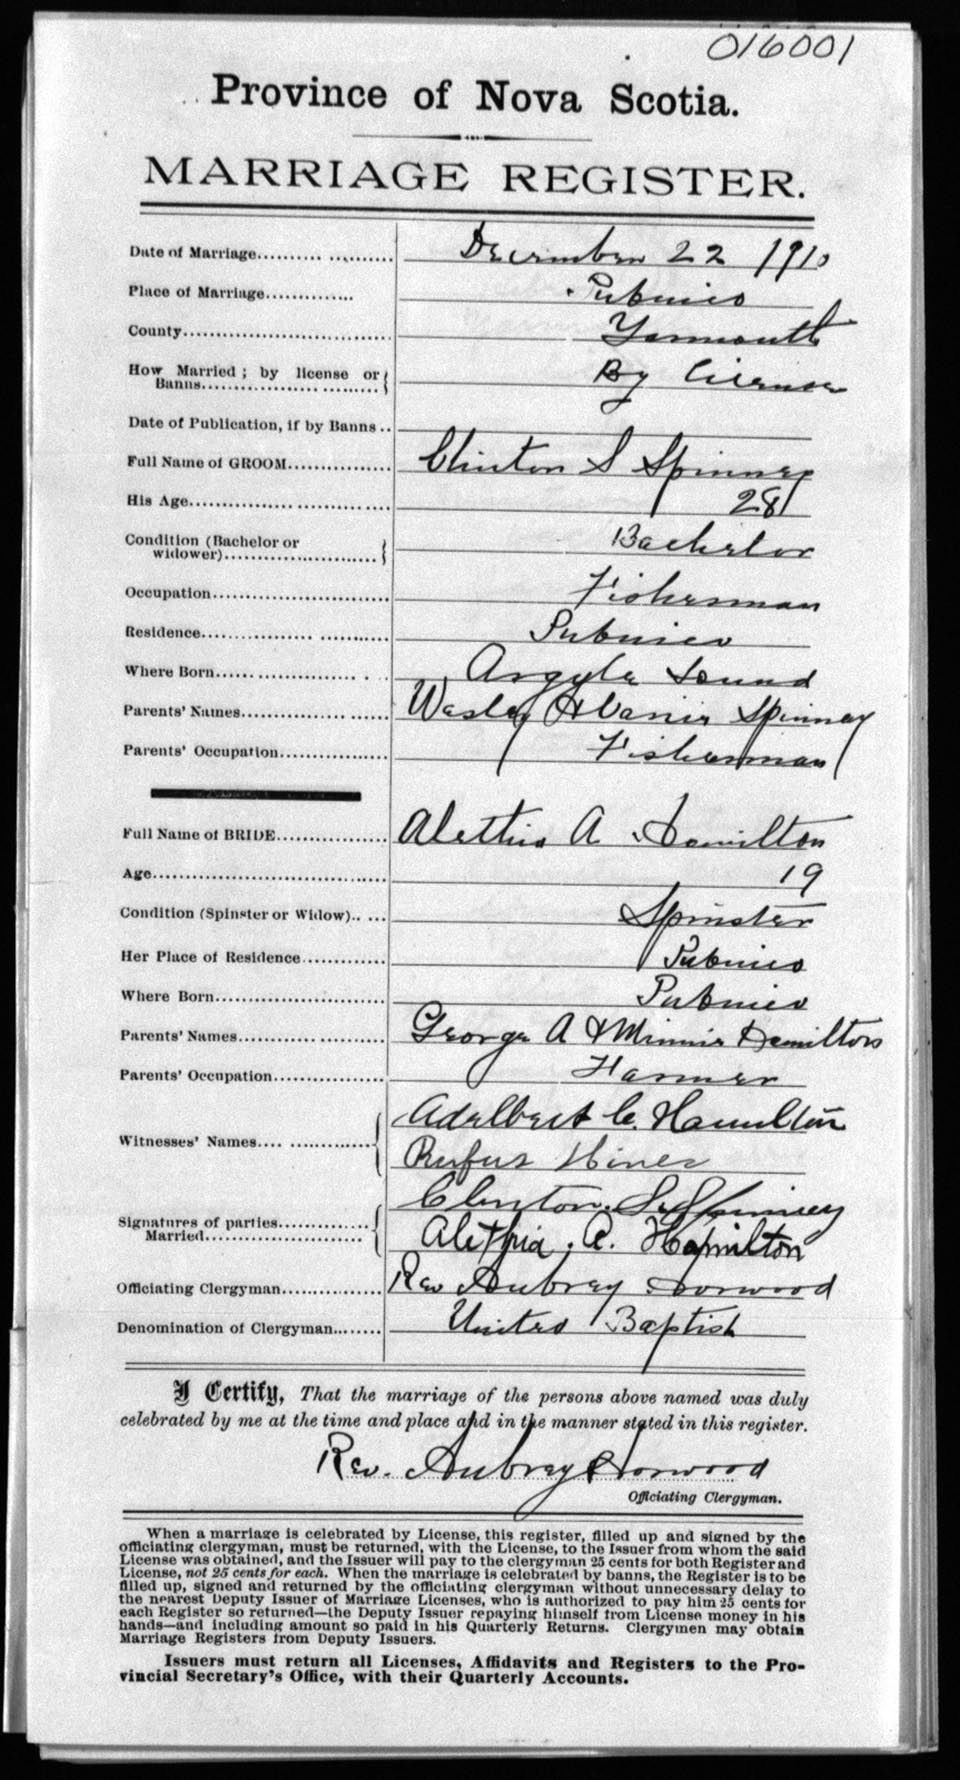 016001
Province of Nova Scotia.
MARRIAGE REGISTER.
Date of Marriage.................... December 22 1910
Place of Marriage.............. Pubnico
County.................................. Yarmouth
How Married ; by license or Banns........................... { By License
Date of Publication, if by Banns ..
Full Name of GROOM................ Clinton S Spinney
His Age................................. 28
Condition (Bachelor or widower)......................... { Bachelor
Occupation............................. Fisherman
Residence.............................. Pubnico
Where Born........................... Argyle Sound
Parents' Names...................... Wesley & Spinney
Parents' Occupation................. Fisherman
Full Name of BRIDE................. Alethia A Hamilton
Age....................................... 19
Condition (Spinster or Widow)..... Spinster
Her Place of Residence............. Pubnico
Where Born............................ Pubnico
Parents' Names....................... George A & Minnie Hamilton
Parents' Occupation.................. Farmer
Witnesses' Names.................... { Adelbert C. Hamilton
Rufus Hines
Signatures of parties Married.................... { Clinton. S. Spinney
Alethia. A. Hamilton
Officiating Clergyman................ Rev Aubrey
Denomination of Clergyman........ United Baptist
I Certify, That the marriage of the persons above named was duly
celebrated by me at the time and place and in the manner stated in this register.
Rev. Aubrey
Officiating Clergyman.
When a marriage is celebrated by License, this register, filled up and signed by the
officiating clergyman, must be returned, with the License, to the Issuer from whom the said
License was obtained, and the Issuer will pay to the clergyman 25 cents for both Register and
License, not 25 cents for each. When the marriage is celebrated by banns, the Register is to be
filled up, signed and returned by the officiating clergyman without unnecessary delay to
the nearest Deputy Issuer of Marriage Licenses, who is authorized to pay him 25 cents for
each Register so returned—the Deputy Issuer repaying himself from License money in his
hands—and including amount so paid in his Quarterly Returns. Clergymen may obtain
Marriage Registers from Deputy Issuers.
Issuers must return all Licenses, Affidavits and Registers to the Pro-
vincial Secretary's Office, with their Quarterly Accounts.